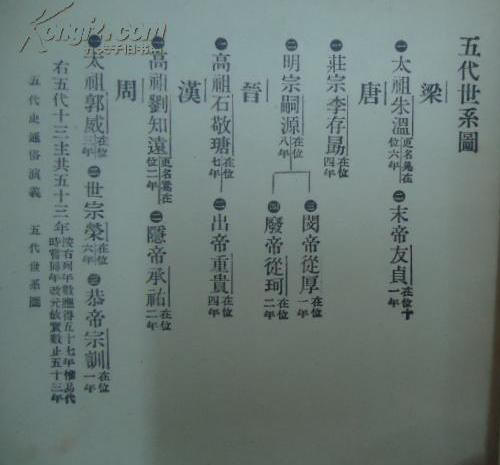 五代世系圖
梁
㊀太祖朱溫更名晃在位六年 ㊁末帝友貞在位十一年
唐
㊀莊宗李存勗在位四年
㊁明宗嗣源在位八年 ㊂閔帝從厚在位一年
㊃廢帝從珂在位二年
晉
㊀高祖石敬瑭在位七年 ㊁出帝重貴在位四年
漢
㊀高祖劉知遠更名暠在位二年 ㊁隱帝承祐在位二年
周
㊀太祖郭威在位三年 ㊁世宗榮在位六年 ㊂恭帝宗訓在位一年
右五代十三主共五十三年
按右列年數應得五十七年惟易代時嘗同年改元故實數止五十三年
五代史通俗演義 五代世系圖
Kongfz.com
孔夫子旧书网